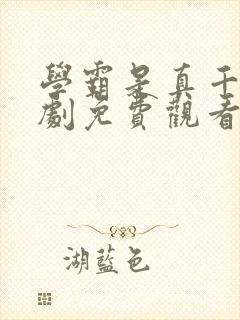 學霸是真千
劇免費觀看
湖藍色